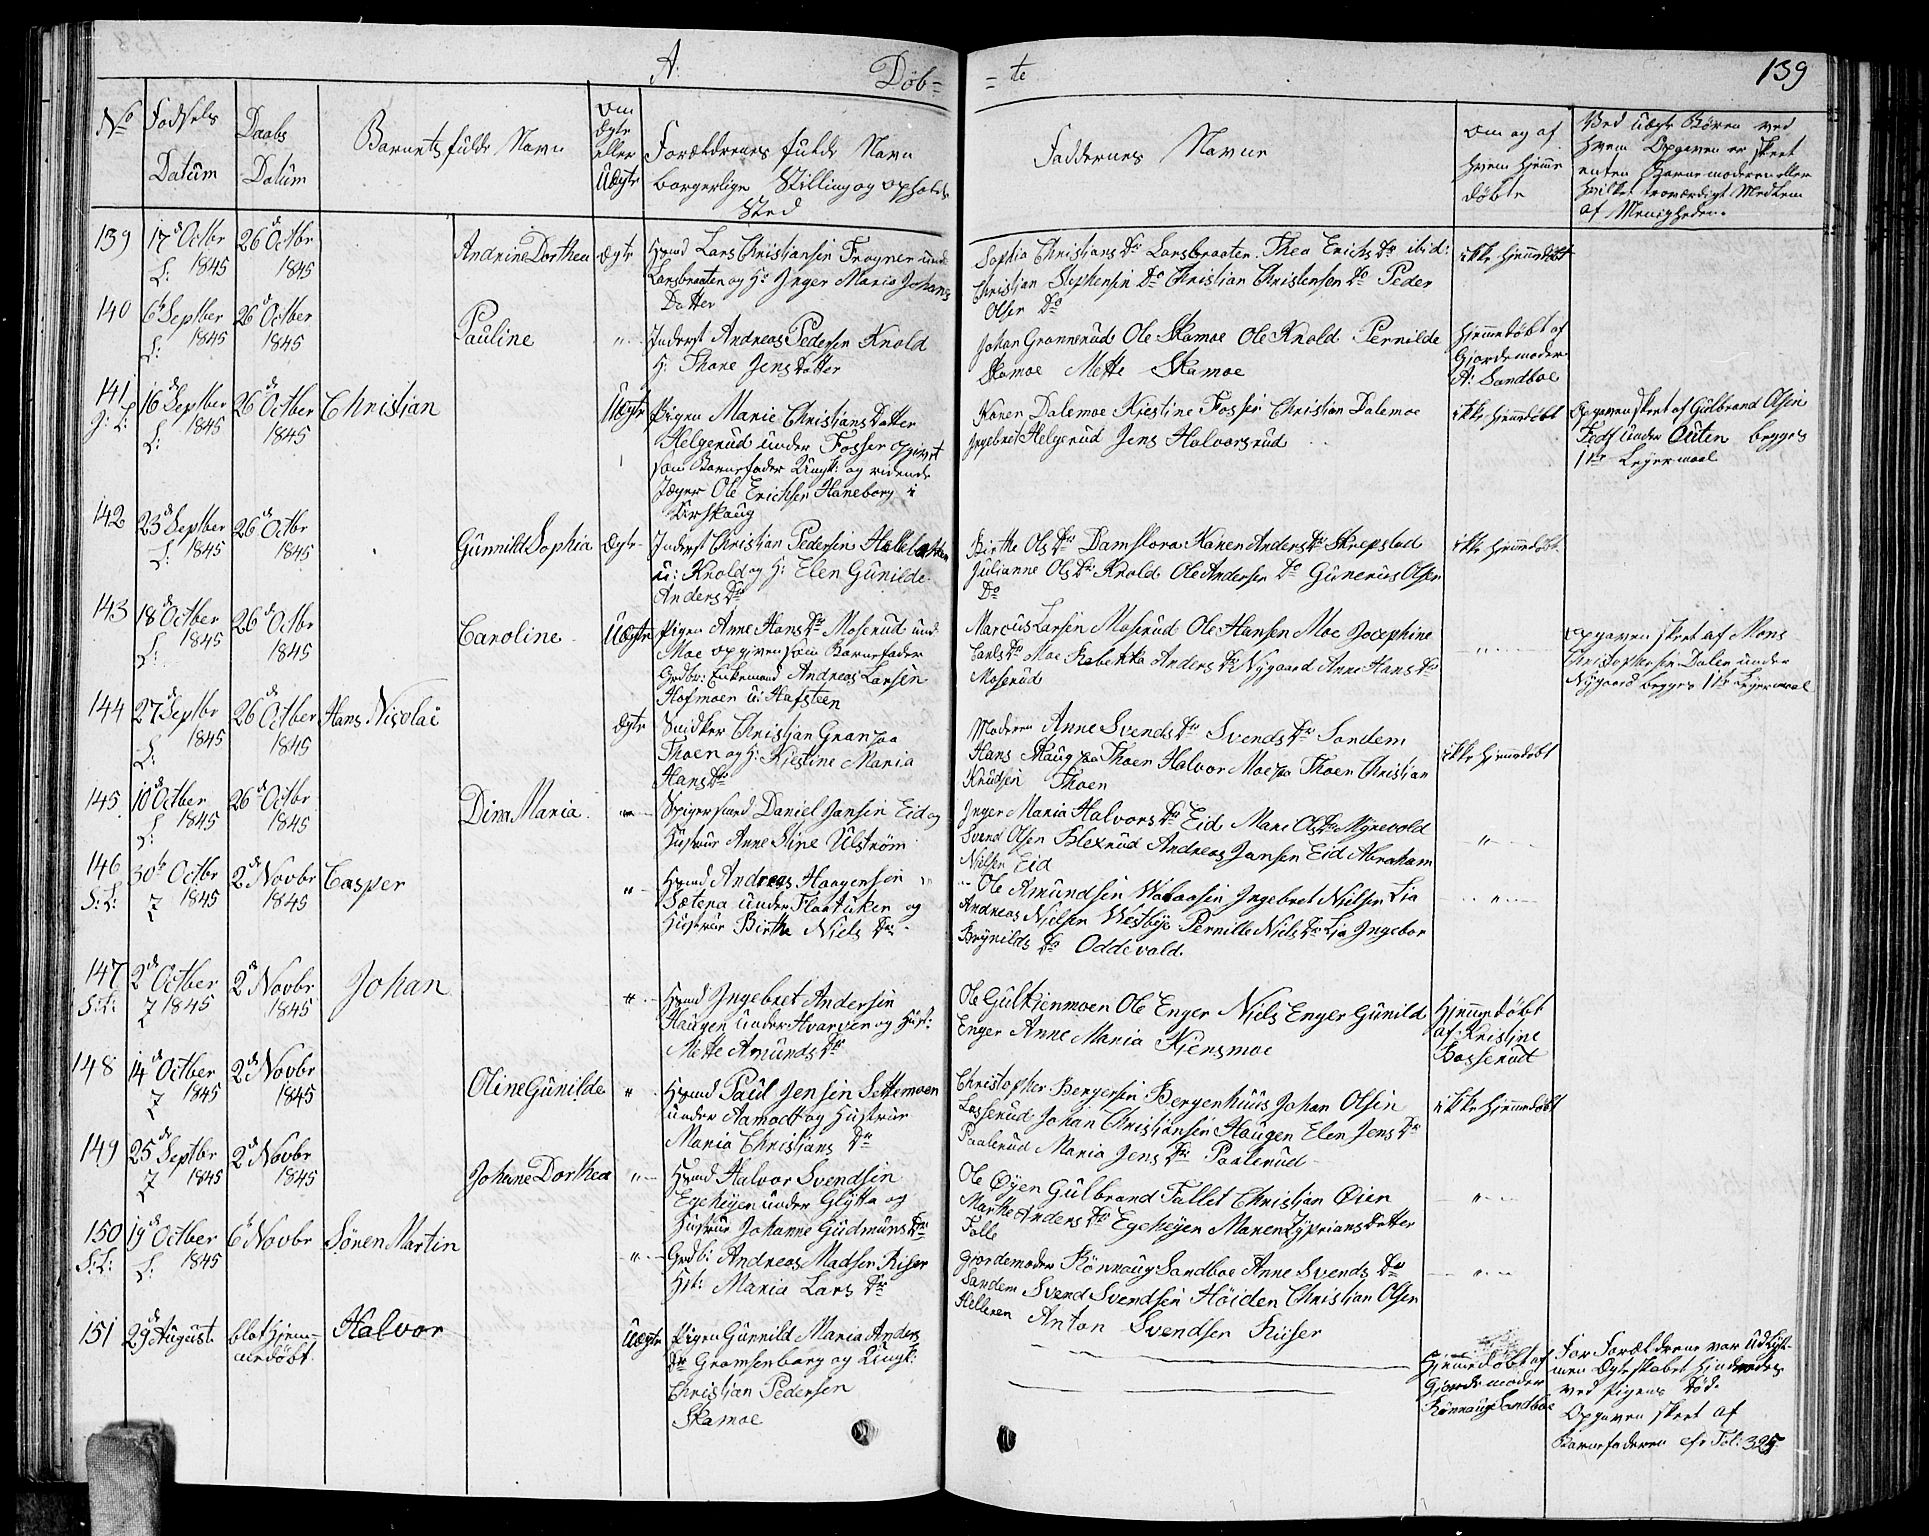 A:
Døb= =te
139
No
Fødsels Datum
Daabs Datum
Barnets fulde Navn
Om Ægte eller Uægte
Forældrenes fulde Navn
borgerlige Stilling og Opholds
Sted
Faddernes Navne
Om og af
hvem hjemme
døbte
Ved uægte Børn ved
hvem Opgaven er skeet
enten Barnemoderen eller
hvilket troværdigt Medlem
af Menigheden.
139 17d Octbr 1845 26d Octbr 1845 Andrine Dorthea Ægte
Lars Christiansen Frogner und:
Larsbraaten og H: Inger Maria Johans
Datter
Sophia Christians Dr Larsbraaten Thea Erichs Dr ibid:
Christian Stephensen Do Christian Christensen Do Peder
Olsen Do
ikke hjemmedøbt
140 6t Septber 1845 26d Octber 1845 Pauline "
Inderst Andreas Pedersen Knold
H: Thore Jensdatter
Johan Grønnerud Ole Skamoe Ole Knold Pernilde
Skamoe Mette Skamoe
Hjemmedøbt af
Gjordemoder
A: Sandboe
141 16d Septber 1845 26d Octber 1845 Christian Uægte
Pigen Marie Christians Datter
Helgerud under Fosser opgivet
som Barnefader Ungk: og ridende
Jæger Ole Erichsen Haneborg i
Urskaug
Karen Dalemoe Kiestine Fosser Christian Dalemoe
Ingebret Helgerud Jens Halvorsrud
ikke hjemmedøbt
Opgaven skeet af Gulbrand Olsen
under Outen begges
1ste Leiermaal
142 23d Septber 1845 26d Octbr 1845 Gunnild Sophia Ægte
Inderst Christian Pedersen
u: Knold og H: Elen Gunilde
Anders Dr
Birthe Ols Dr Damflora Karen Anders Dr Skrepstad
Julianne Ols Dr Knold Ole Andersen Do Gunerius Olsen
Do
ikke hjemmedøbt
143 18d Octber 1845 26d Octbr 1845 Caroline Uægte
Pigen Anne Hans Dr Moserud und
Moe opgiven som Barnefader
Grdbr: Enkemand Andreas Larsen
Hofmoen u: Hafsteen
Marcus Larsen Moserud Ole Hansen Moe Josephine
Carls Dr Moe Rebekka Anders Dr Nygaard Anne Hans Dr
Moserud
"
Opgaven skeet af Mons
Christophersen Dalen under
Nygaard begges 1ste Leiermaal
144 27d Septbr 1845 26d Octber 1845 Hans Nicolai Ægte
Snidker Christian Gran paa
Thoen og H: Kiestine Maria
Hans Dr
Moderen Anne Svends Dr Svends Dr Sandem
Hans Skaug paa Thoen Halvor Moe paa Thoen Christian
Knudsen Thoen
ikke hjemmedøbt
145 10d Octber 1845 26d Octbr 1845 Dina Maria "
Daniel Jansen Eid og
Hustrue Anne Stine Ulstrøm
Inger Maria Halvors Dr Eid Mari Ols Dr Myrevold
Svend Olsen Blexrud Andreas Jansen Eid Abraham
Nilsen Eid
"
146 30t Octbr 1845 2d Novbr 1845 Casper "
Andreas Haagensen
Sætena under Flaatuken og
Hustrue Birthe Niels Dr
Ole Amundsen Ingebret Nielsen Lia
Andreas Nielsen Westbye Pernille Niels Dr Lia Ingebor
Brynilds Dr Oddevold
"
147 2d Octber 1845 2d Novbr 1845 Johan "
Ingebret Andersen
Haugen under Hvarven og Hust:
Mette Amunds Dr
Ole Gulkienmoen Ole Enger Niels Enger Gunild
Enger Anne Maria Kiensmoe
Hjemmedøbt
af Kristine
Bosserud
148 14d Octber 1845 2d Novbr 1845 Oline Gunilde "
Paul Jensen Settemoen
under Aamodt og Hustrue
Maria Christians Dr
Christopher Bergersen Bergenhuus Johan Olsen
Losserud Johan Christiansen Haugen Elen Jens Dr
Paalerud Maria Jens Dr Paalerud
ikke hjemmedøbt
149 25d Septbr 1845 2d Novbr 1845 Johanne Dorthea "
Halvor Svendsen
Egehøyen under Glytta og
Hustrue Johanne Gudmunds Dr
Ole Øyen Gulbrand Fallet Christian Øien
Marthe Anders Dr Egehøyen Maren Cyprians datter
Falle
"
150 19d Octber 1845 6t Novbr Søren Martin "
Grdb: Andreas Madsen Riser
Hst: Maria Lars Dr
Gjordemoder Rønnaug Sandboe Anne Svends Dr
Sandem Svend Svendsen Høiden Christian Olsen
Helleren Anton Svendsen Riiser
"
151 29d August blot hjem-
medøbt Halvor Uægte
Pigen Gunnild Maria Anders
Dr Gromsenborg og Ungk:
Christian Pedersen
Skamoe
Hjemmedøbt af
Gjordemoder
Rønnaug Sandboe
For Forældrene var udlyst
men Ægteskabet hindredes
ved Pigens Død.
Opgaven skeet af
Barnefaderen cfr Fol: 325